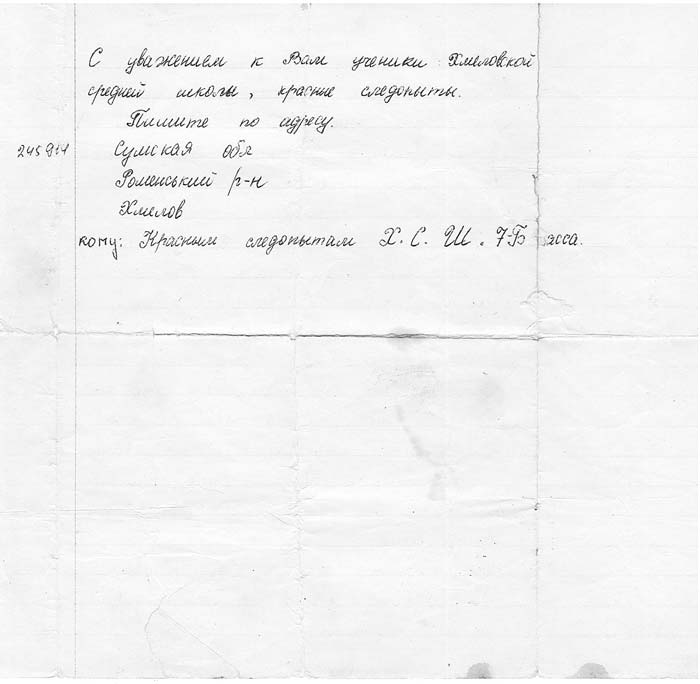 С уважением к Вам ученики Хмеловской
средней школы, красные следопыты.
Пишите по адресу.
Сумская обл
Роменський р-н
Хмелов
кому: Красным следопытам Х. С. Ш. 7-Б